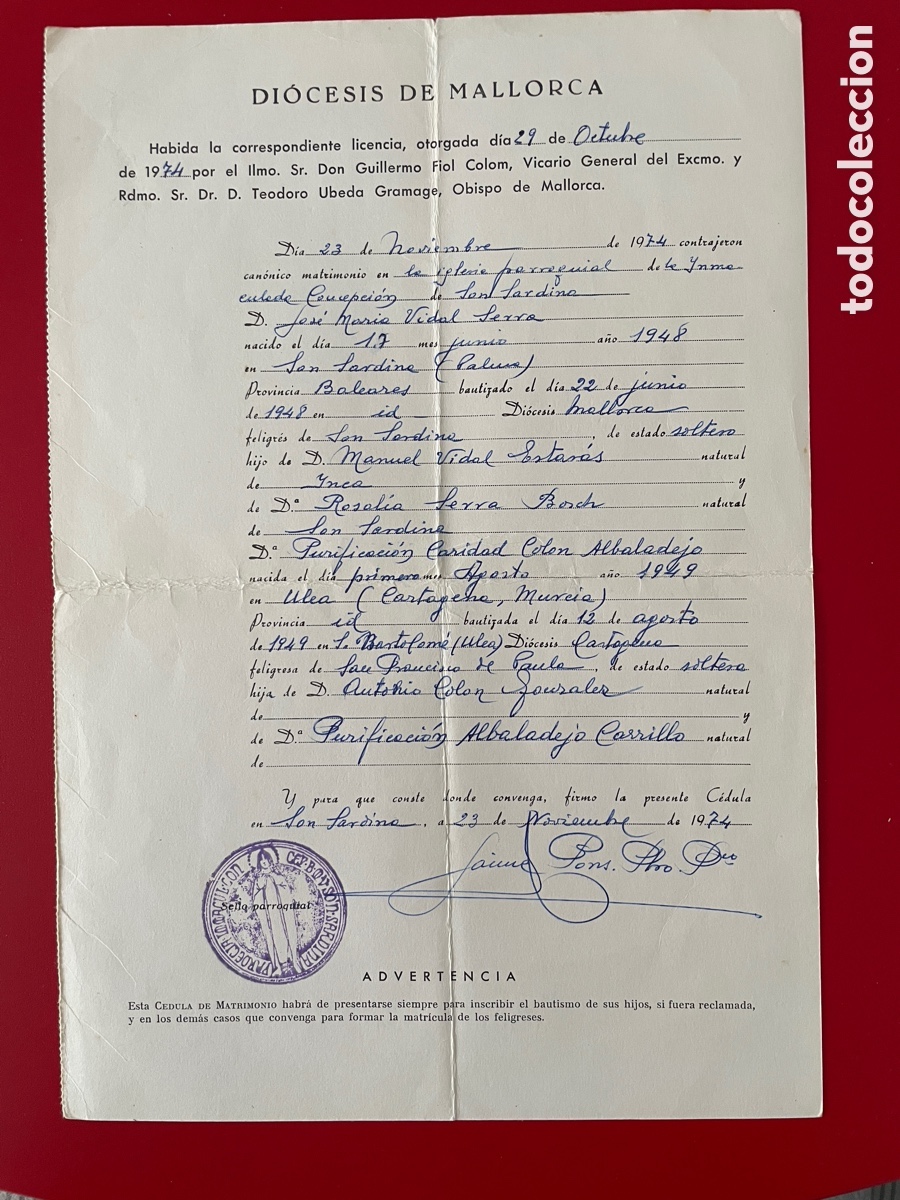 DIÓCESIS DE MALLORCA
Habida la correspondiente licencia, otorgada día 29 de Octubre
de 1974 por el Ilmo. Sr. Don Guillermo Fiol Colom, Vicario General del Excmo. y
Rdmo. Sr. Dr. D. Teodoro Ubeda Gramage, Obispo de Mallorca.
Día 23 de Noviembre de 1974 contrajeron
canónico matrimonio en la iglesia parroquial de la Inma-
culada Concepción de Son Sardina
D. José Maria Vidal Serra
nacido el día 17 mes junio año 1948
en Son Sardina (Palma)
Provincia Baleares bautizado el día 22 de junio
de 1948 en id Diócesis Mallorca
feligrés de Son Sardina, de estado soltero
hijo de D. Manuel Vidal Estarás natural
de Inca y
de D.ª Rosalía Serra Bosch natural
de Son Sardina
D.ª Purificación Caridad Colon Albaladejo
nacida el día primero mes Agosto año 1949
en Ulea (Cartagena, Murcia)
Provincia id bautizada el día 12 de agosto
de 1949 en S. Bartolomé (Ulea) Diócesis Cartagena
feligresa de San Francisco de Paula, de estado soltera
hija de D. Antonio Colon Gonzalez natural
de y
de D.ª Purificación Albaladejo Carrillo natural
de
Y para que conste donde convenga, firmo la presente Cédula
en Son Sardina, a 23 de Noviembre de 1974
Jaime Pons. Pbro.
Sello parroquial
SON SARDINA
ADVERTENCIA
Esta CEDULA DE MATRIMONIO habrá de presentarse siempre para inscribir el bautismo de sus hijos, si fuera reclamada,
y en los demás casos que convenga para formar la matrícula de los feligreses.
todocoleccion